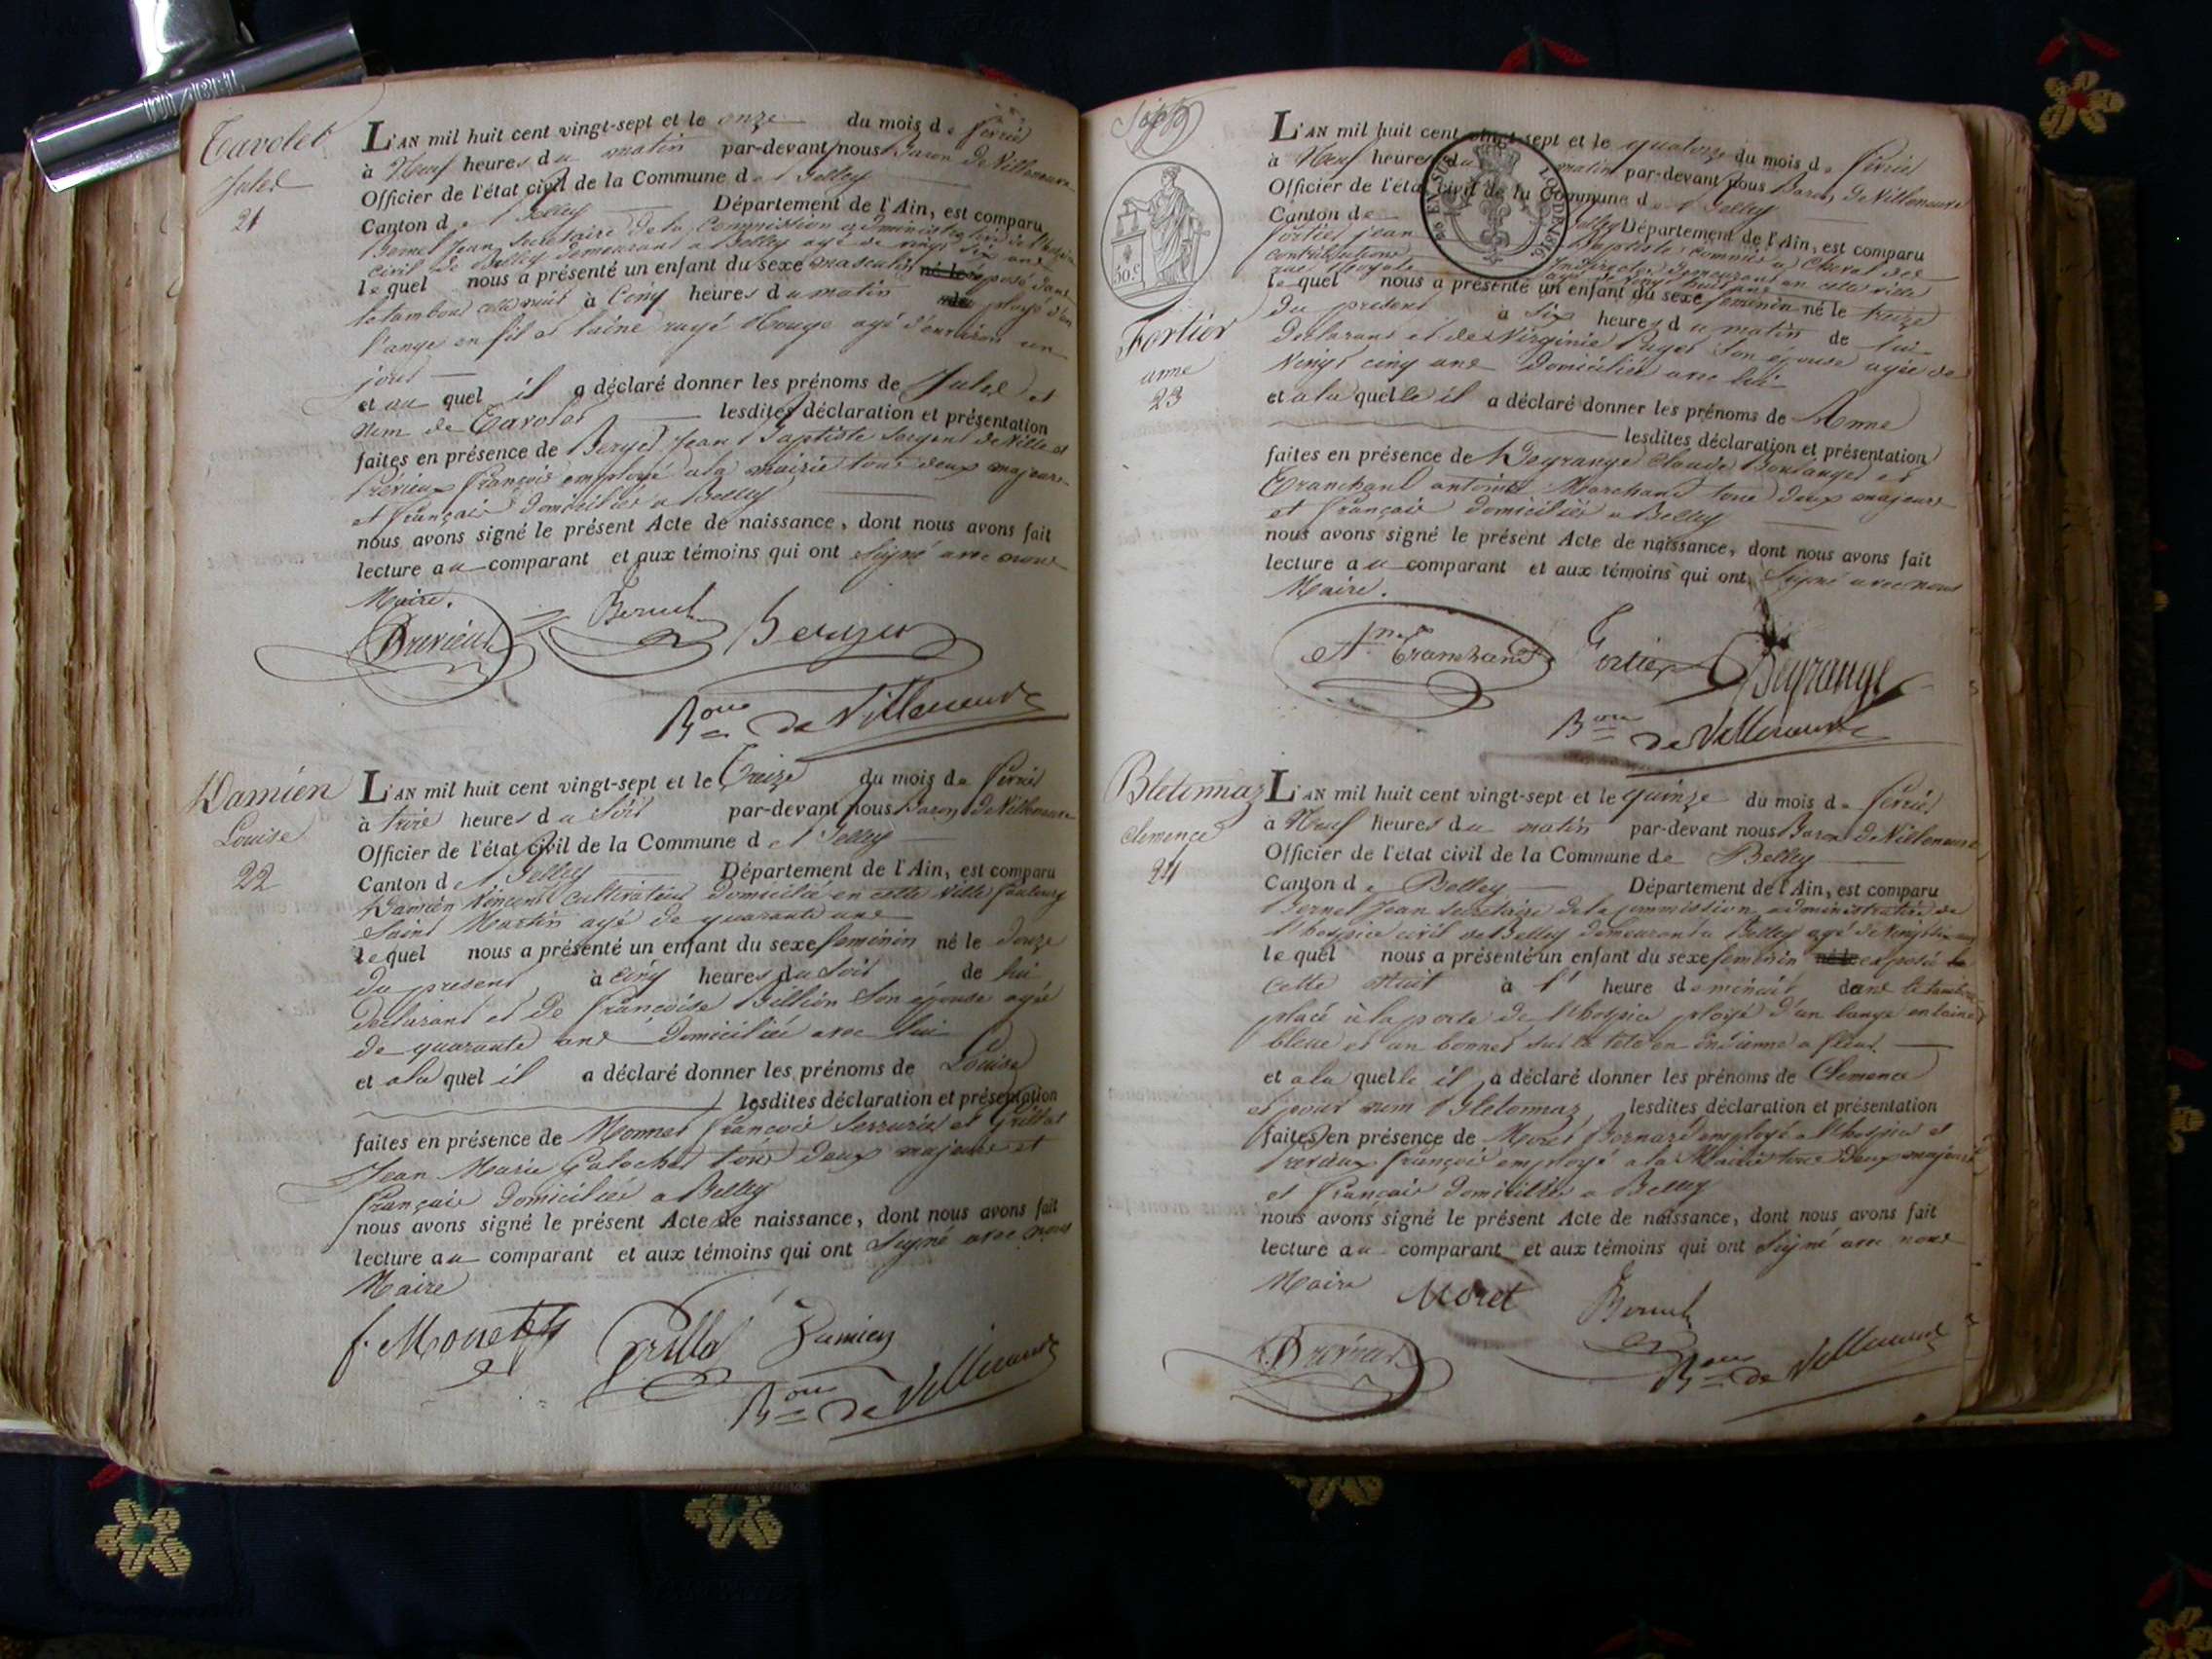 Tavolet
Jules
21
L'AN mil huit cent vingt-sept et le onze du mois de février
à Neuf heures du matin par-devant nous Baron de Villeneuve
Officier de l'état civil de la Commune de Belley
Canton de Belley Département de l'Ain, est comparu
Bernel Jean Secretaire de la Commission administrative de l'hospice
civil de Belley demeurant a Belley agé de vingt six ans
lequel nous a présenté un enfant du sexe masculin né le exposé dans
le tambour cette nuit à Cinq heures du matin ployé d'un
lange en fil et laine rayé Rouge agé d'environ un
jour
et au quel il a déclaré donner les prénoms de Jules et
nom de Tavolet lesdites déclaration et présentation
faites en présence de Berger Jean Baptiste Sergent de Ville et
Prévieux François employé a la mairie tous deux majeurs
et français domiciliés a Belley
nous avons signé le présent Acte de naissance, dont nous avons fait
lecture au comparant et aux témoins qui ont Signé avec nous
Maire.
Prévieux Bernel Berger
Bon de Villeneuve
Damien
Louise
22
L'AN mil huit cent vingt-sept et le Treize du mois de février
à trois heures du Soir par-devant nous Baron de Villeneuve
Officier de l'état civil de la Commune de Belley
Canton de Belley Département de l'Ain, est comparu
Damien Vincent Cultivateur domicilié en cette ville faubourg
Saint Martin agé de quarante ans
lequel nous a présenté un enfant du sexe feminin né le douze
du present à cinq heures du Soir de lui
declarant et de Françoise Billion Son épouse agée
de quarante ans domiciliée avec lui
et a la quel il a déclaré donner les prénoms de Louise
lesdites déclaration et présentation
faites en présence de Monnet François Serrurier et Grillet
Jean Marie Galochier tous deux majeurs et
français domiciliés a Belley
nous avons signé le présent Acte de naissance, dont nous avons fait
lecture au comparant et aux témoins qui ont Signé avec nous
Maire
f. Monet Grillet Damien
Bon de Villeneuve
50 c
EN SUS
LOI DE 1816
Fortier
anne
23
L'AN mil huit cent vingt-sept et le quatorze du mois de février
à Neuf heures du matin par-devant nous Baron de Villeneuve
Officier de l'état civil de la Commune de Belley
Canton de Belley Département de l'Ain, est comparu
fortier jean Baptiste commis a Cheval des
contributions Indirectes demeurant en cette ville
agé de vingt huit ans
lequel nous a présenté un enfant du sexe feminin né le treize
du present à Six heures du matin de lui
declarant et de Virginie Puget Son epouse agée de
Vingt cinq ans domiciliée avec lui
et a la quelle il a déclaré donner les prénoms de Anne
lesdites déclaration et présentation
faites en présence de Deyrange Claude Boulanger et
Tranchand antoine Marchand tous deux majeurs
et français domiciliés a Belley
nous avons signé le présent Acte de naissance, dont nous avons fait
lecture au comparant et aux témoins qui ont Signé avec nous
Maire.
Ane Tranchand Fortier Deyrange
Bon de Villeneuve
Bletonnaz
clemence
24
L'AN mil huit cent vingt-sept et le quinze du mois de février
à Neuf heures du matin par-devant nous Baron de Villeneuve
Officier de l'état civil de la Commune de Belley
Canton de Belley Département de l'Ain, est comparu
Bernel Jean Secretaire de la commission administrative de
l'hospice civil de Belley demeurant a Belley agé de Vingt six ans
lequel nous a présenté un enfant du sexe feminin né le exposé
cette Nuit à l' heure de minuit dans le tambour
placé à la porte de l'hospice ployé d'un lange en laine
bleue et un bonnet sur la tete en indienne a fleur
et a la quelle il a déclaré donner les prénoms de Clemence
et pour nom Bletonnaz lesdites déclaration et présentation
faites en présence de Moret Bernard employé a l'hospice et
Prévieux françois employé a la Mairie tous deux majeurs
et français domiciliés a Belley
nous avons signé le présent Acte de naissance, dont nous avons fait
lecture au comparant et aux témoins qui ont Signé avec nous
Maire Moret Bernel
Prévieux Bon de Villeneuve